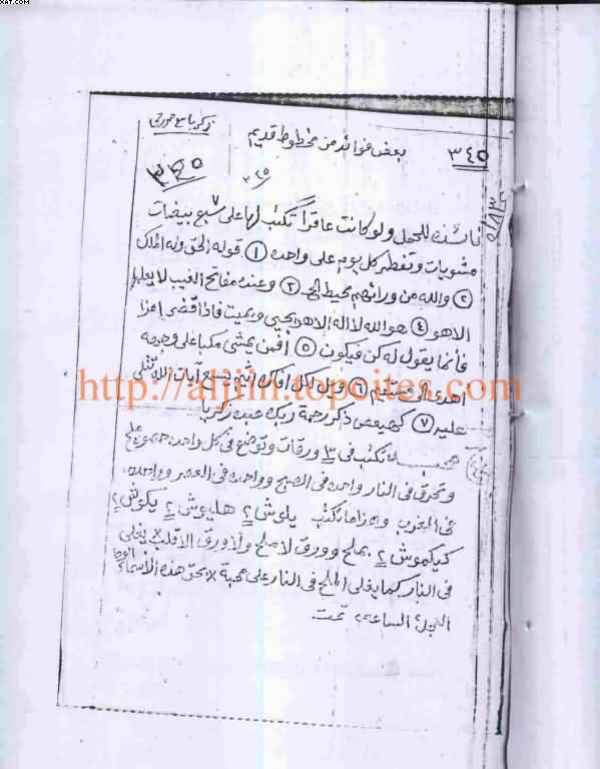 XAT.COM
بعض فوائد من مخطوط قديم
٣٤٥
٣٤٥
٣٤٥
فائده للحبل ولو كانت عاقراً تكتب لها على ٧ سبع بيضات
مشويات وتفطر كل يوم على واحده ١ قوله الحق وله الملك
٢ والله من ورائهم محيط ٣ وعنده مفاتح الغيب لا يعلمها
الا هو ٤ هو الله لا اله الا هو يحيي ويميت فاذا قضى امرا
فأنما يقول له كن فيكون ٥ افمن يمشي مكبا على وجهه
اهدى ٦ ويل لكل افاك اثيم يسمع آيات الله تتلى
عليه ٧ كهيعص ذكر رحمة ربك عبده زكريا
http://aljiin.topcites.com
تكتب في ٣ ورقات وتوضع في كل واحده ملح
وتحرق في النار واحده في الصبح وواحده في العصر وواحده
في المغرب وهذا ما تكتب يلوش ٢ هليوش ٢ يكوش ٢
كيكموش ٢ يملح وورق لا ملح ولا ورق الا قلب يغلي
في النار كما يغلي الملح في النار على محبة بحق هذه الأسماء
العجل ٢ الساعه ٢ تمت